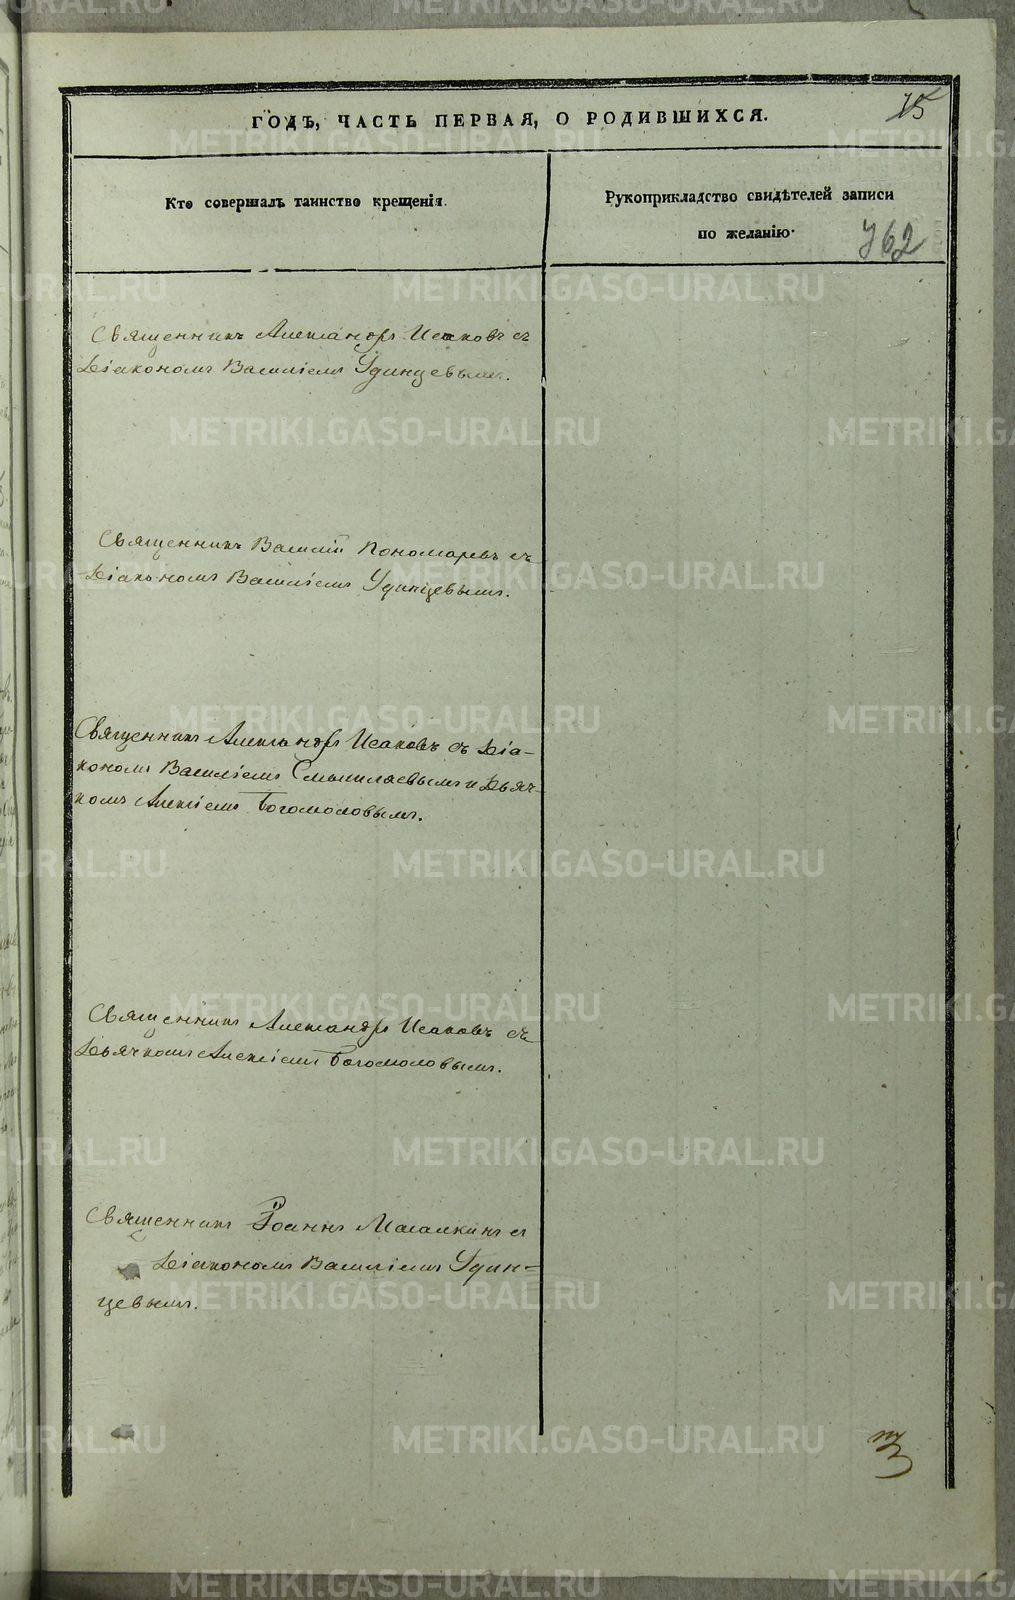 15
ГОДЪ, ЧАСТЬ ПЕРВАЯ, О РОДИВШИХСЯ.
Кто совершалъ таинство крещенія.
Рукоприкладство свидѣтелей записи
по желанію.
762
Священникъ Александръ Исаковъ съ
Діакономъ Василіемъ Удинцевымъ.
Священникъ Василій Пономаревъ съ
Діакономъ Василіемъ Удинцевымъ.
Священникъ Александръ Исаковъ съ Діа-
кономъ Василіемъ Смышляевымъ и Дьяч-
комъ Алексіемъ Богомоловымъ.
Священникъ Александръ Исаковъ съ
Дьячкомъ Алексіемъ Богомоловымъ.
Священникъ Іоаннъ съ
Діакономъ Василіемъ Удин=
цевымъ.
METRIKI.GASO-URAL.RU